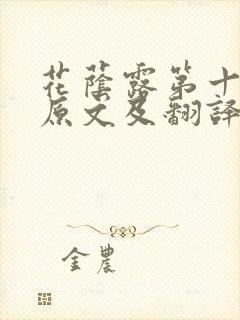 花蔭露第十
原文及翻譯
金農